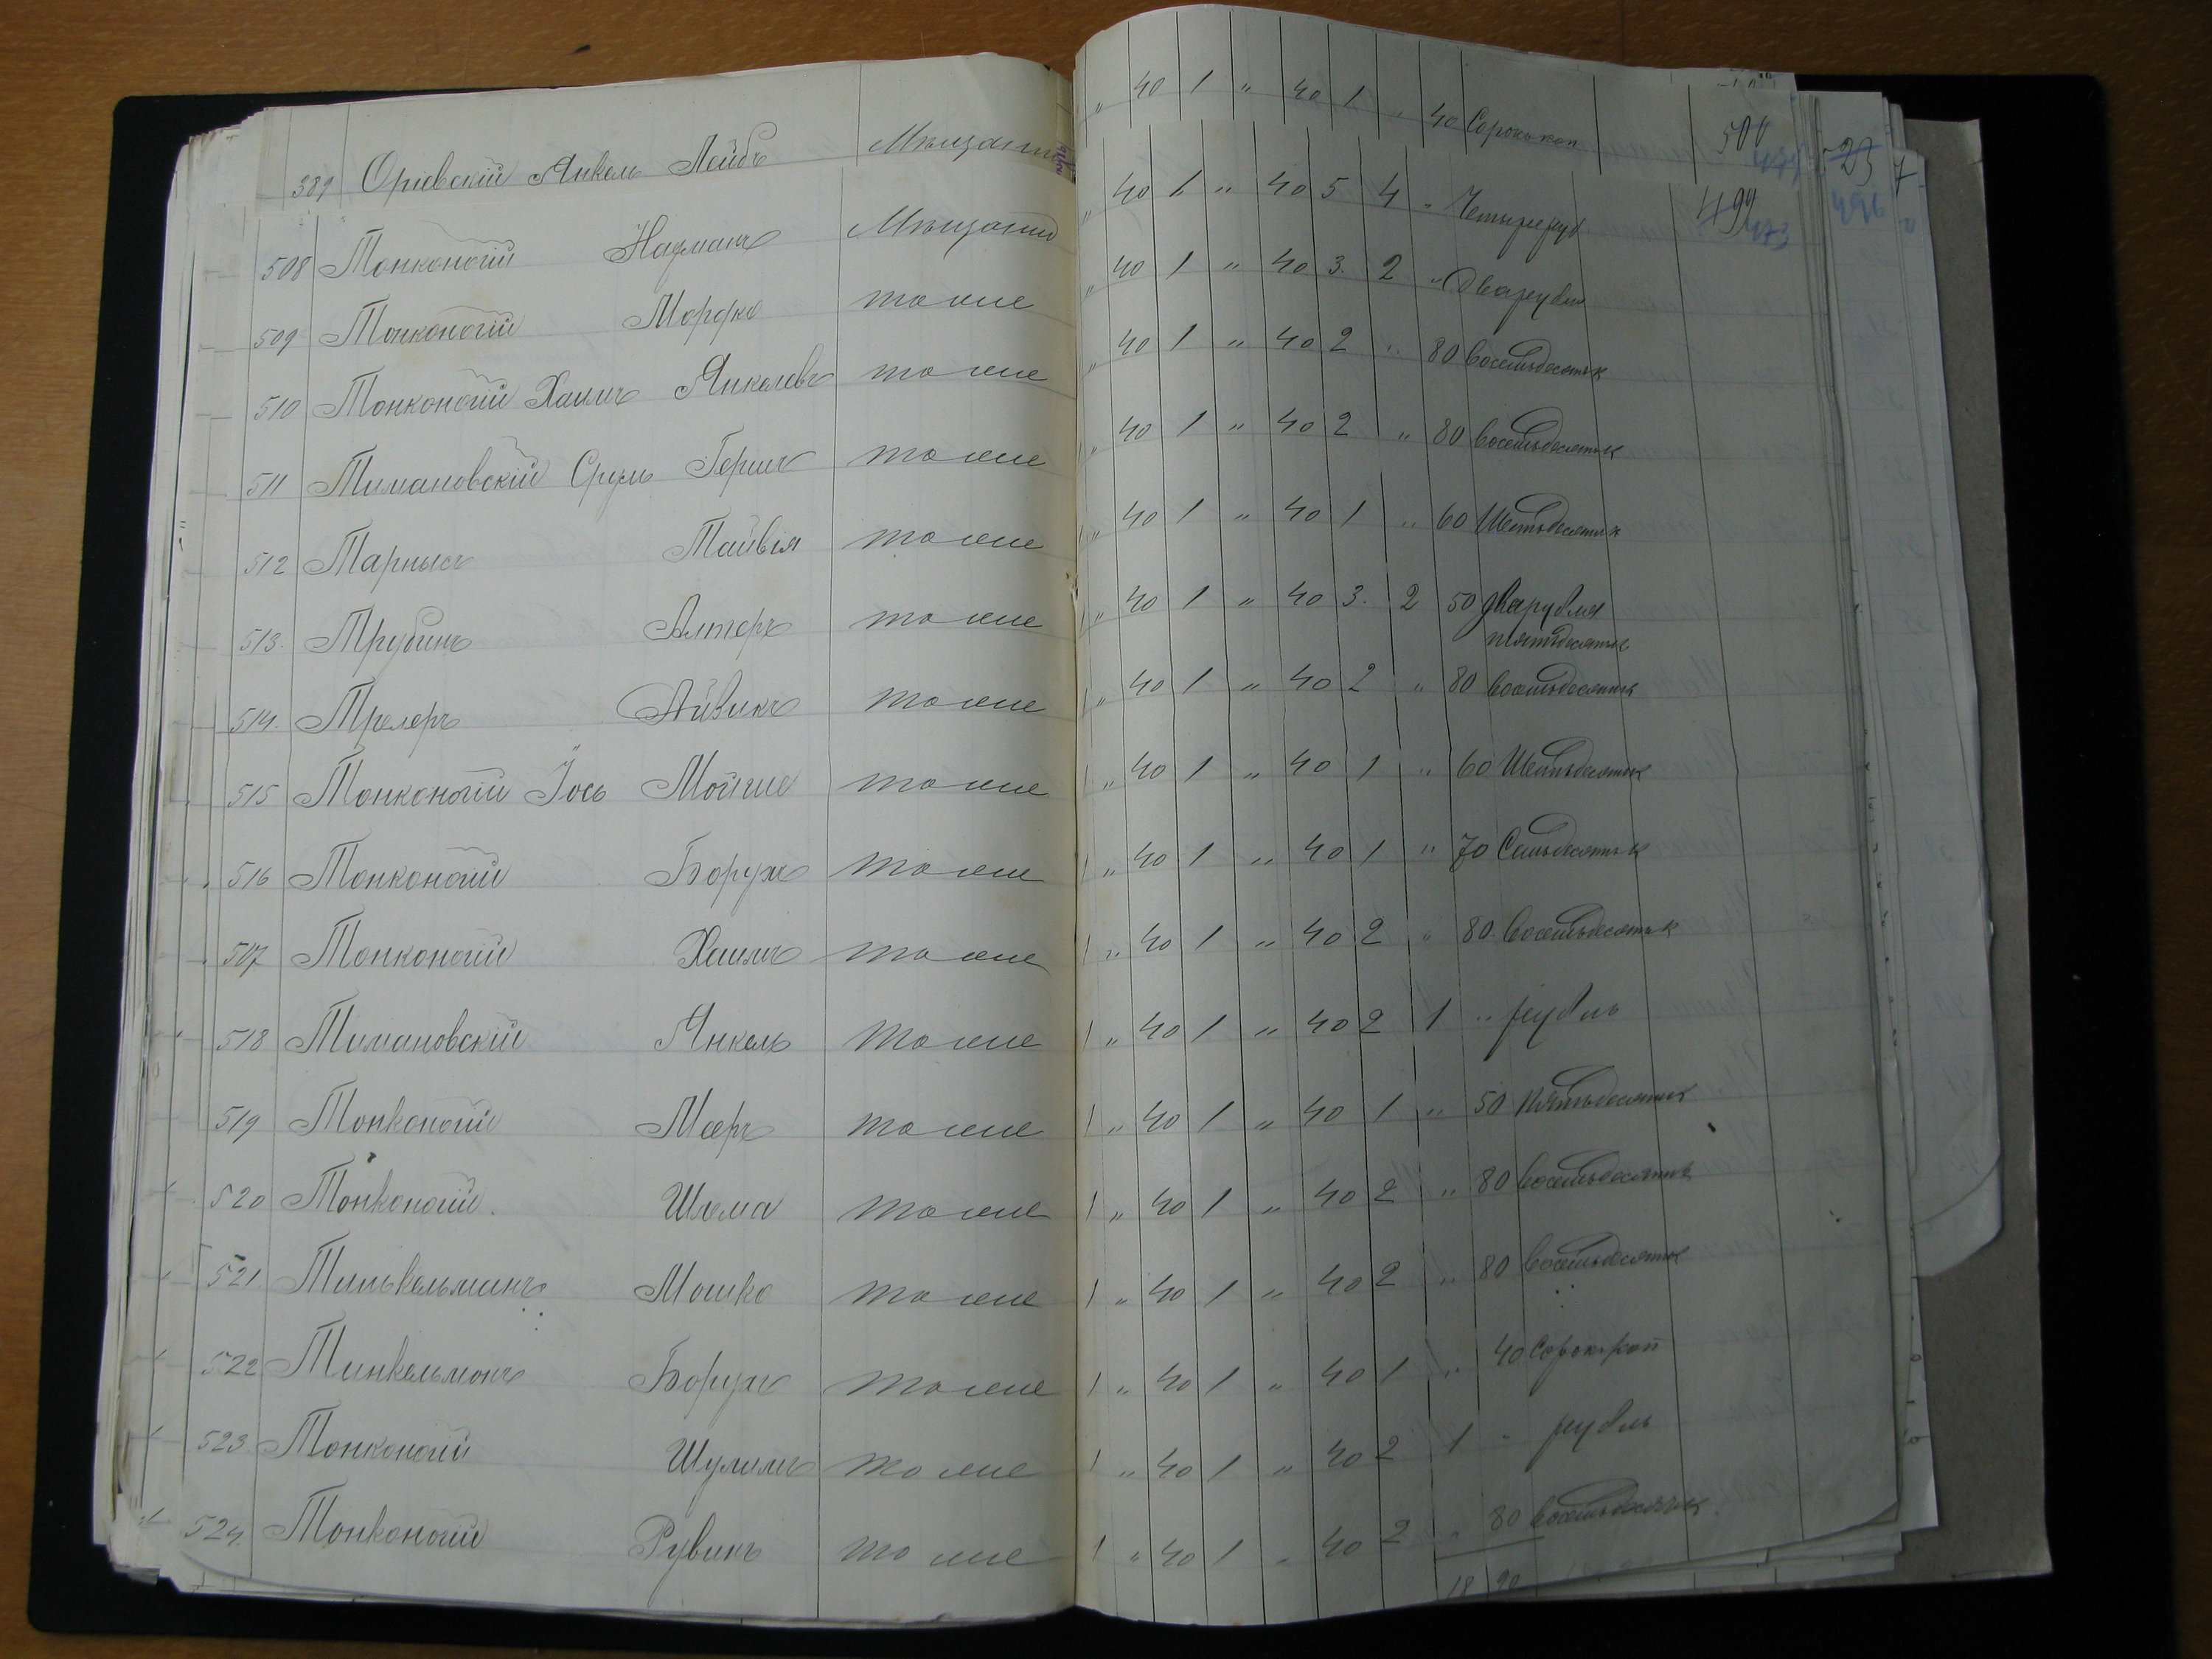 389 Оріевскій Янкель Лейбъ Мѣщанинъ „ 40 1 „ 40 1 „ 40 Сорокъ коп 500
508 Тонконогій Нахманъ Мѣщанинъ „ 40 1 „ 40 5 4 „ Четыре руб 499 473
509 Тонконогій Мордко тоже „ 40 1 „ 40 3. 2 „ Два рубля
510 Тонконогій Хаимъ Янкелевъ тоже „ 40 1 „ 40 2 „ 80 восемьдесятъ к
511 Тимановскій Сруль Гершъ тоже „ 40 1 „ 40 2 „ 80 восемьдесятъ к
512 Тарнысъ Тайвія тоже „ 40 1 „ 40 1 „ 60 Шестьдесятъ к
513. Трубинъ Алтеръ тоже „ 40 1 „ 40 3. 2 50 два рубля
пятьдесятъ к
514. Трелеръ Айзикъ тоже 1 „ 40 1 „ 40 2 „ 80 восемьдесятъ к
515 Тонконогій Іось Мойше тоже 1 „ 40 1 „ 40 1 „ 60 Шестьдесятъ к
516 Тонконогій Борухъ тоже 1 „ 40 1 „ 40 1 „ 70 Семьдесятъ к
517 Тонконогій Хаимъ тоже 1 „ 40 1 „ 40 2 „ 80 восемьдесятъ к
518 Тимановскій Янкель тоже 1 „ 40 1 „ 40 2 1 „ рубль
519 Тонконогій Мееръ тоже 1 „ 40 1 „ 40 1 „ 50 Пятьдесятъ к
520 Тонконогій. Шлема тоже 1 „ 40 1 „ 40 2 „ 80 восемьдесятъ к
521. Тинькельманъ Мошко тоже 1 „ 40 1 „ 40 2 „ 80 восемьдесятъ к
522 Тинкельманъ Борухъ тоже 1 „ 40 1 „ 40 1 „ 40 Сорокъ коп
523 Тонконогій Шулимъ тоже 1 „ 40 1 „ 40 2 1 „ рубль
524. Тонконогій Рувинъ тоже 1 „ 40 1 „ 40 2 „ 80 восемьдесятъ к
18 90